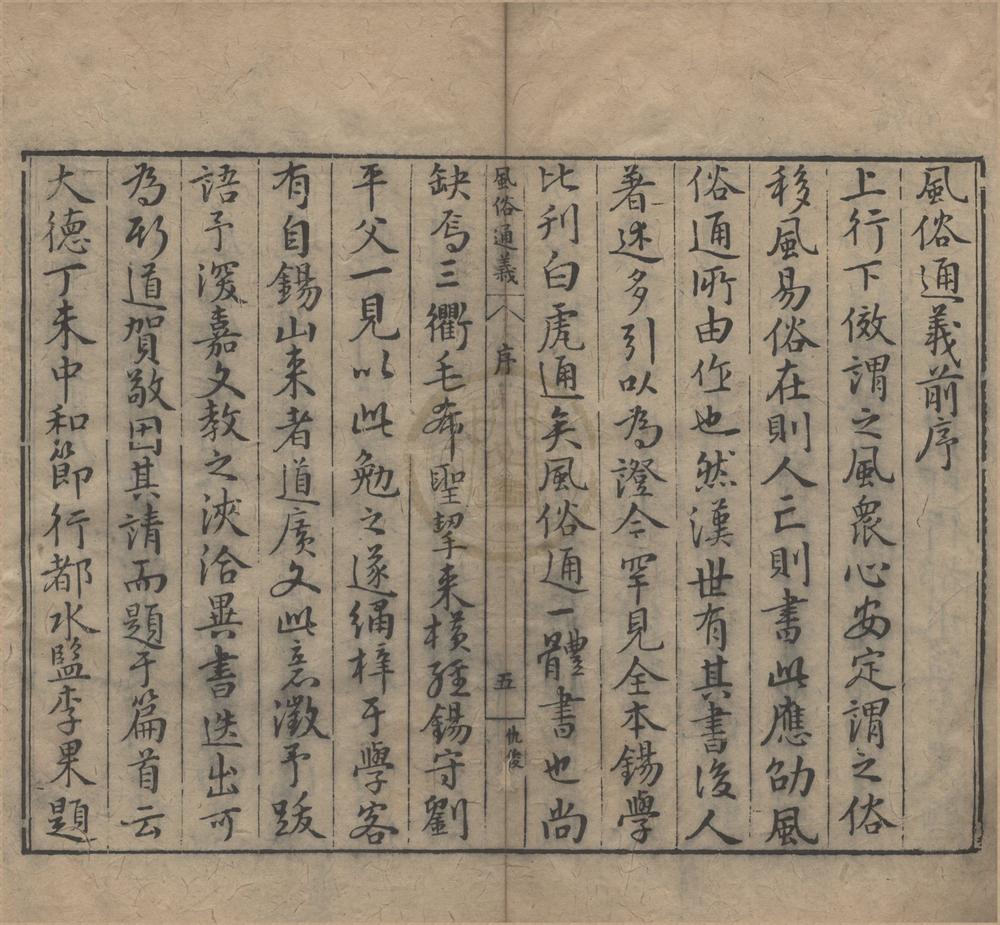 風俗通義前序
上行下傚謂之風衆心安定謂之俗
移風易俗在則人亡則書此應劭風
俗通所由作也然漢世有其書後人
著述多引以為證今罕見全本錫學
比刊白虎通矣風俗通一體書也尚
風俗通義 序 五 仇俊
缺焉三衢毛希聖挈来横經錫守劉
平父一見以此勉之遂綉梓于學客
有自錫山来者道廣文此意徵予跋
語予深嘉文教之浹洽異書迭出可
為斯道賀敬因其請而題于篇首云
大德丁未中和節行都水監李果題